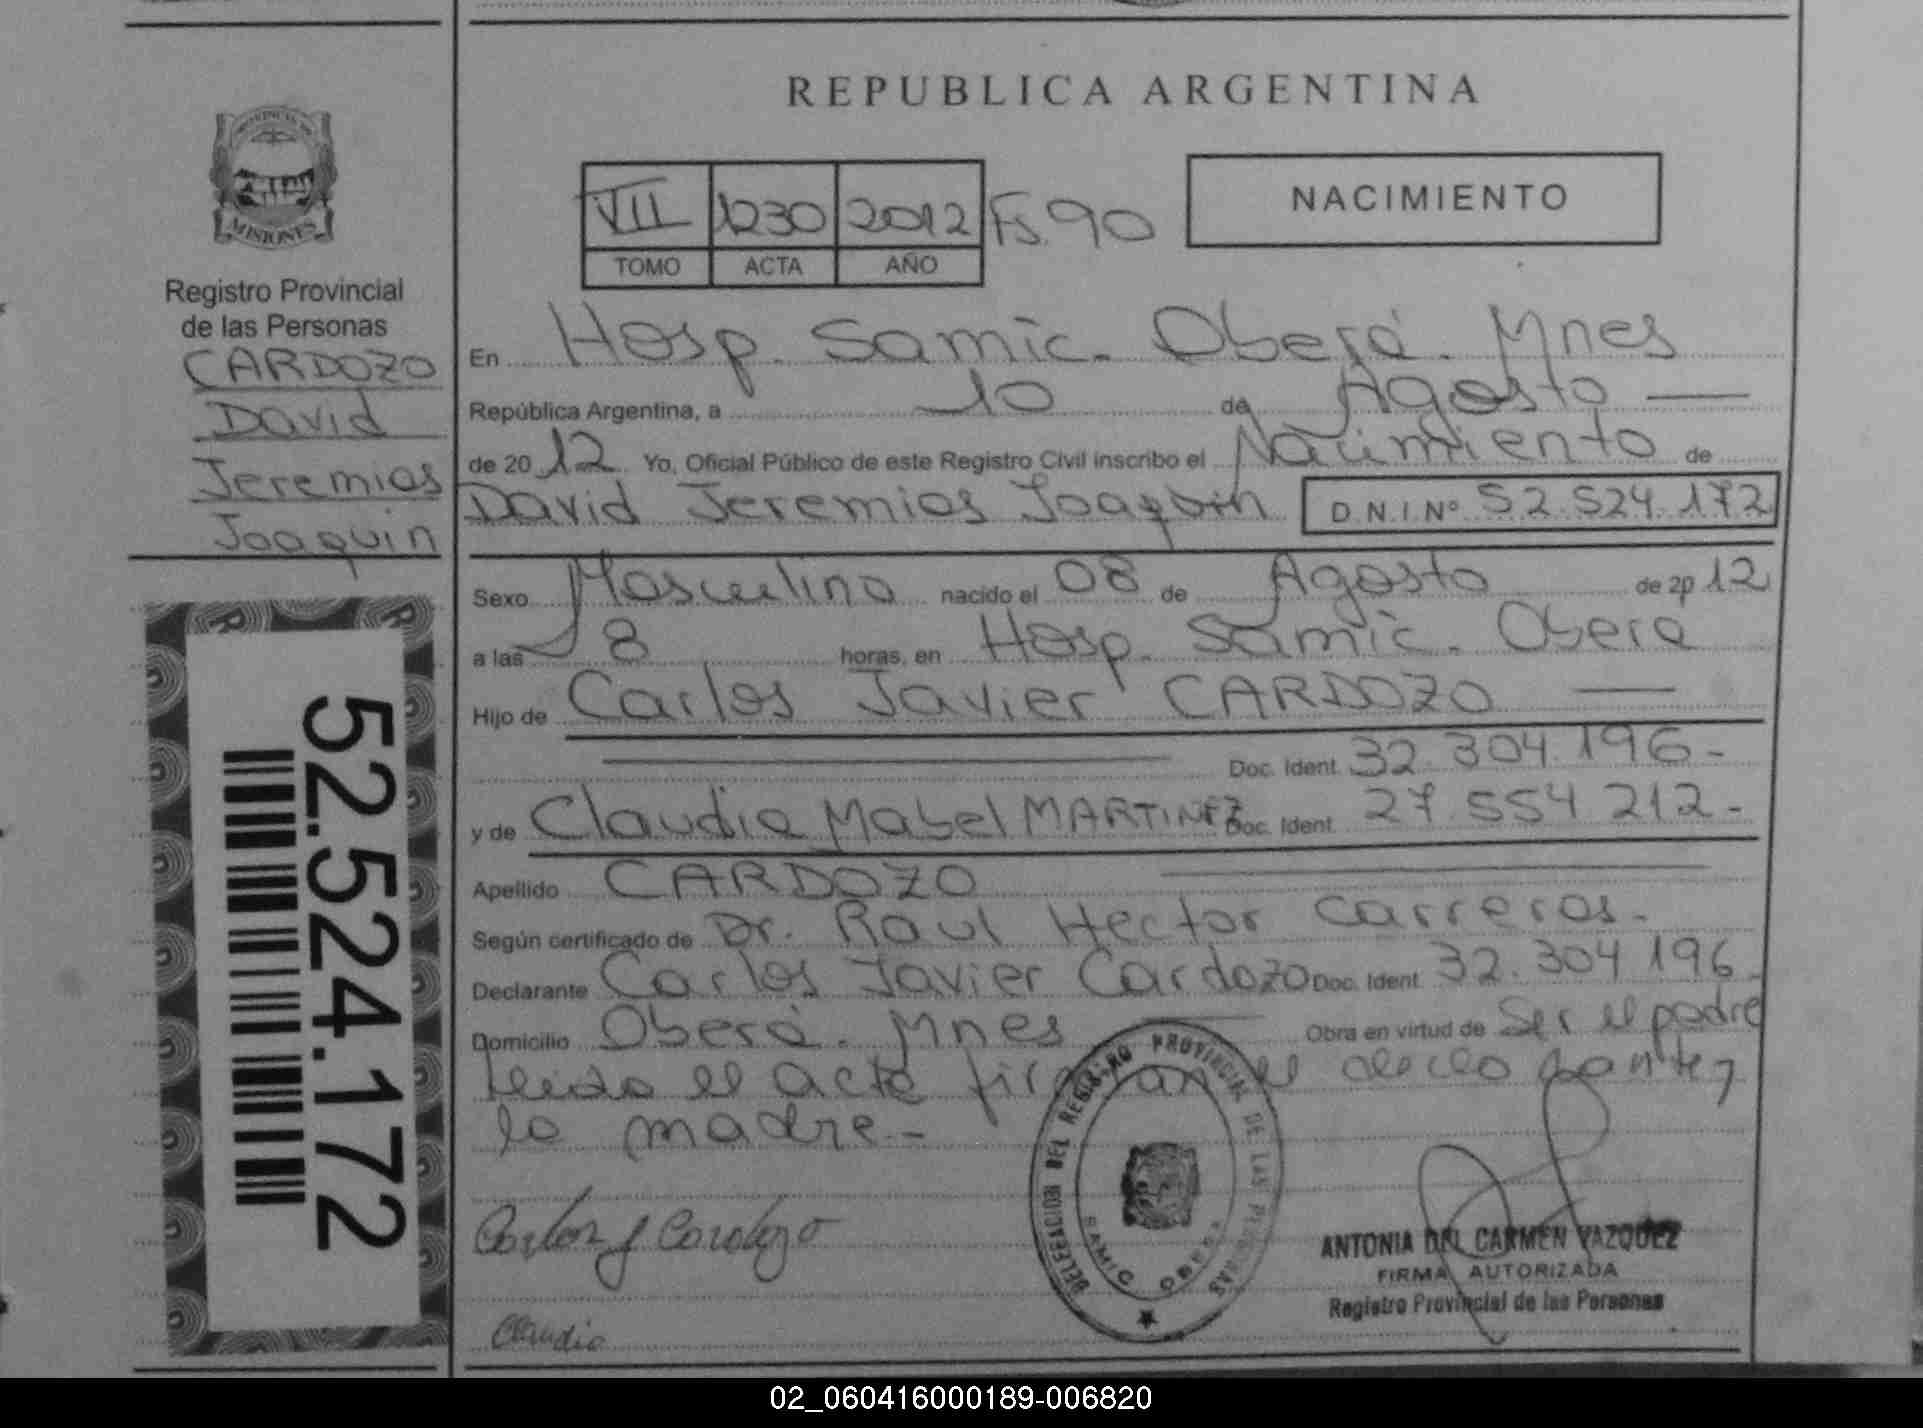 REPUBLICA ARGENTINA
PROVINCIA DE
MISIONES
Registro Provincial
de las Personas
CARDOZO
David
Jeremias
Joaquin
52.524.172
VII 1230 2012 Fs. 90
TOMO ACTA AÑO
NACIMIENTO
En Hosp. Samic. Oberá. Mnes
República Argentina, a 10 de Agosto
de 2012 Yo, Oficial Público de este Registro Civil inscribo el Nacimiento de
David Jeremias Joaquin D.N.I.Nº 52.524.172
Sexo Masculino nacido el 08 de Agosto de 2012
a las 8 horas, en Hosp. Samic. Oberá
Hijo de Carlos Javier CARDOZO
Doc. Ident. 32.304.196-
y de Claudia Mabel MARTINEZ Doc. Ident. 27.554.212-
Apellido CARDOZO
Según certificado de Dr. Raul Hector Carreras.
Declarante Carlos Javier Cardozo Doc. Ident. 32.304.196
Domicilio Oberá. Mnes Obra en virtud de Ser el padre
Leida el acta firman el declarante y
la madre.-
Carlos J Cardozo
Claudia
DELEGACION DEL REGISTRO PROVINCIAL DE LAS PERSONAS
SAMIC OBERA
ANTONIA DEL CARMEN VAZQUEZ
FIRMA AUTORIZADA
Registro Provincial de las Personas
02_060416000189-006820